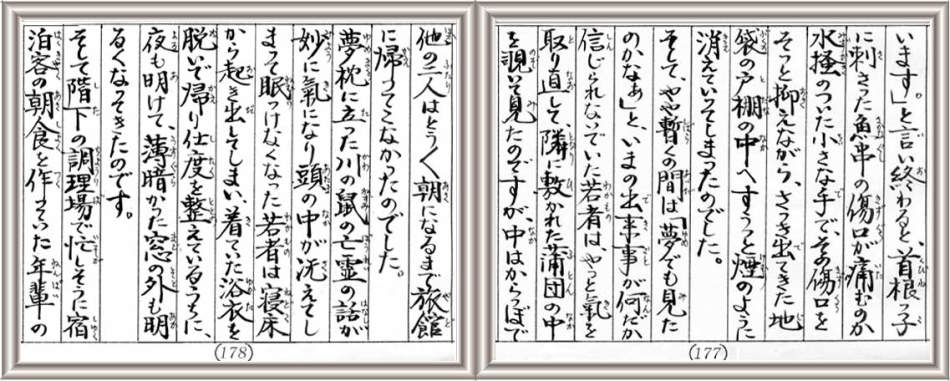 います。」と言い終わると、首根っ子
に刺さった魚串の傷口が痛むのか
水掻のついた小さな手で、その傷口を
そっと抑えながら、さっき出てきた地
袋の戸棚の中へすうっと煙のように
消えていってしまったのでした。
そして、やや暫くの間は「夢でも見た
のかなぁ」と、いまの出来事が何だか
信じられないでいた若者は、やっと氣を
取り直して、隣に敷かれた蒲団の中
を覗いて見たのですが、中はからっぽで
(177)
他の二人はとう〱朝になるまで旅館
に帰ってこなかったのでした。
夢枕に立った川の鼠の亡霊の話が
妙に氣になり頭の中が冴えてし
まって眠っけなくなった若者は寝床
から起き出してしまい、着ていた浴衣を
脱いで帰り仕度を整えているうちに、
夜も明けて、薄暗かった窓の外も明
るくなってきたのです。
そして階下の調理場で忙しそうに宿
泊客の朝食を作っていた年輩の
(178)